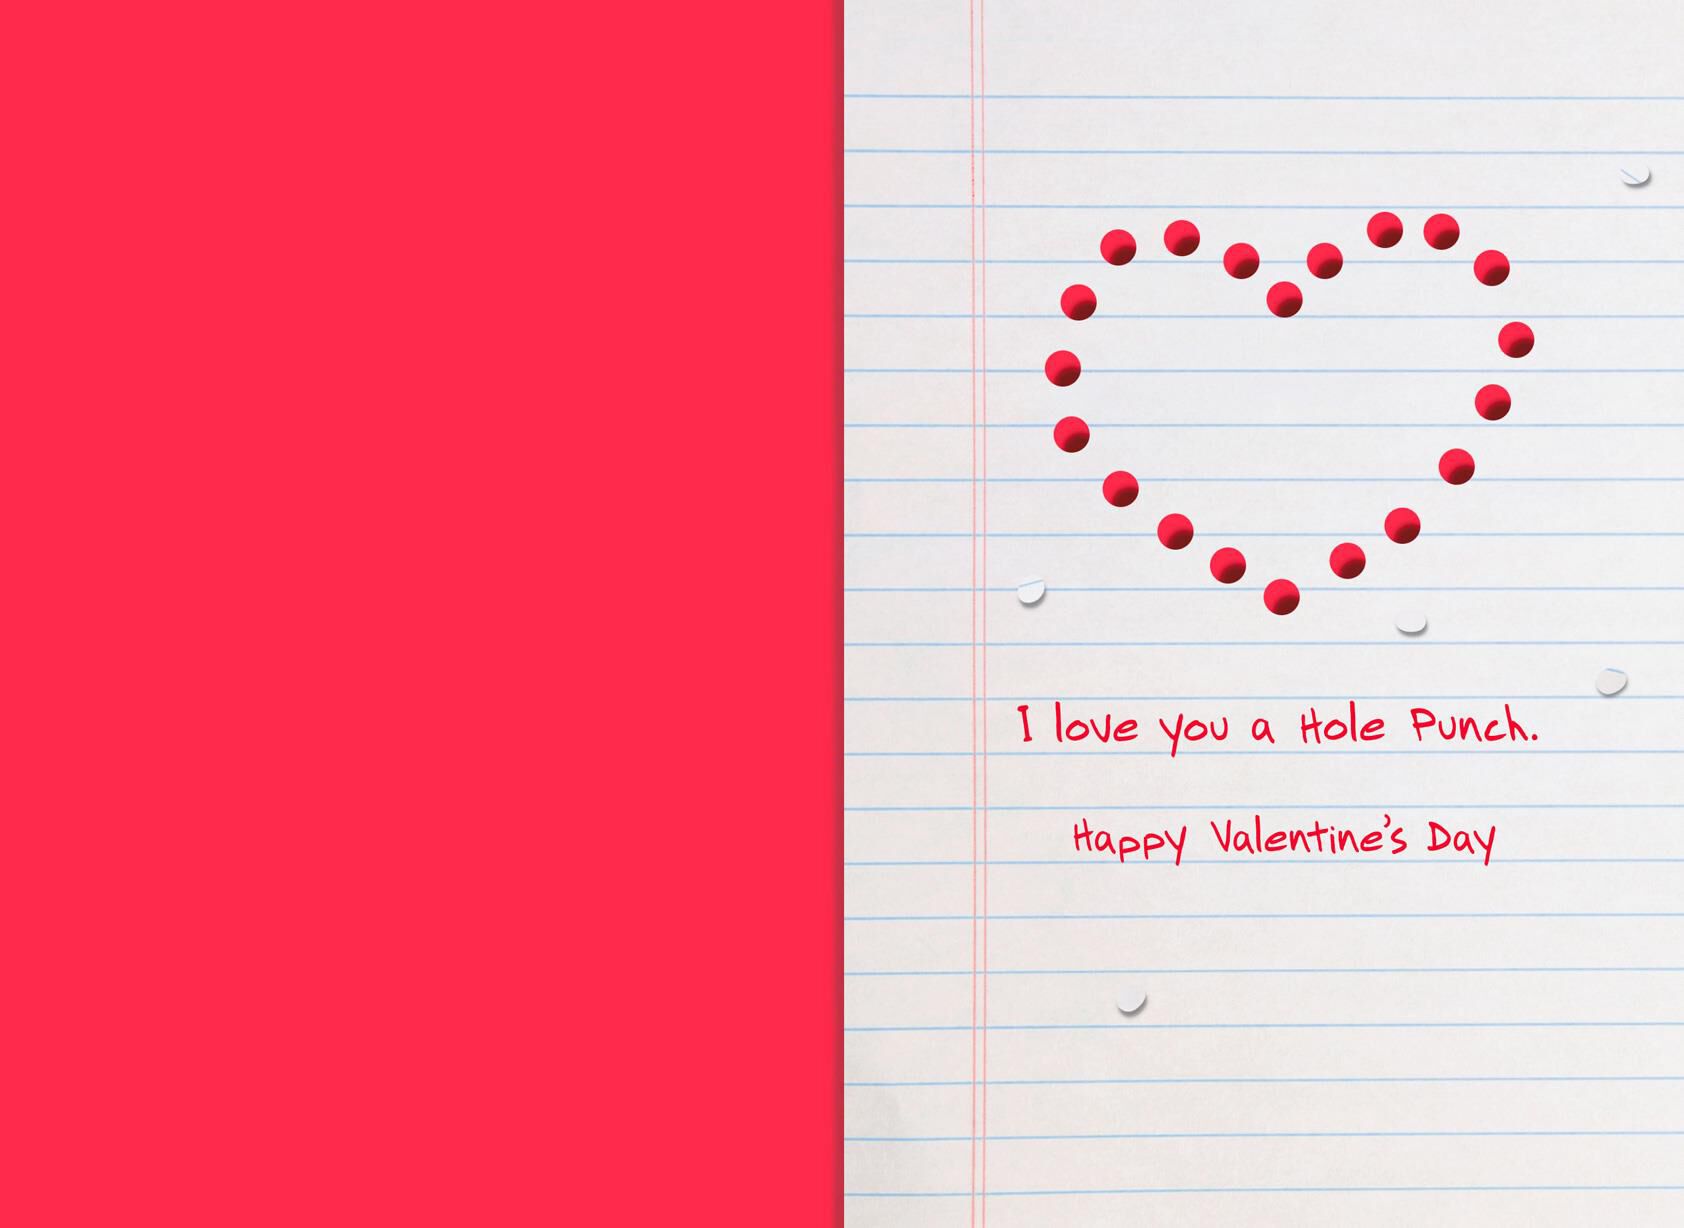 I love you a Hole Punch.
Happy Valentine's Day